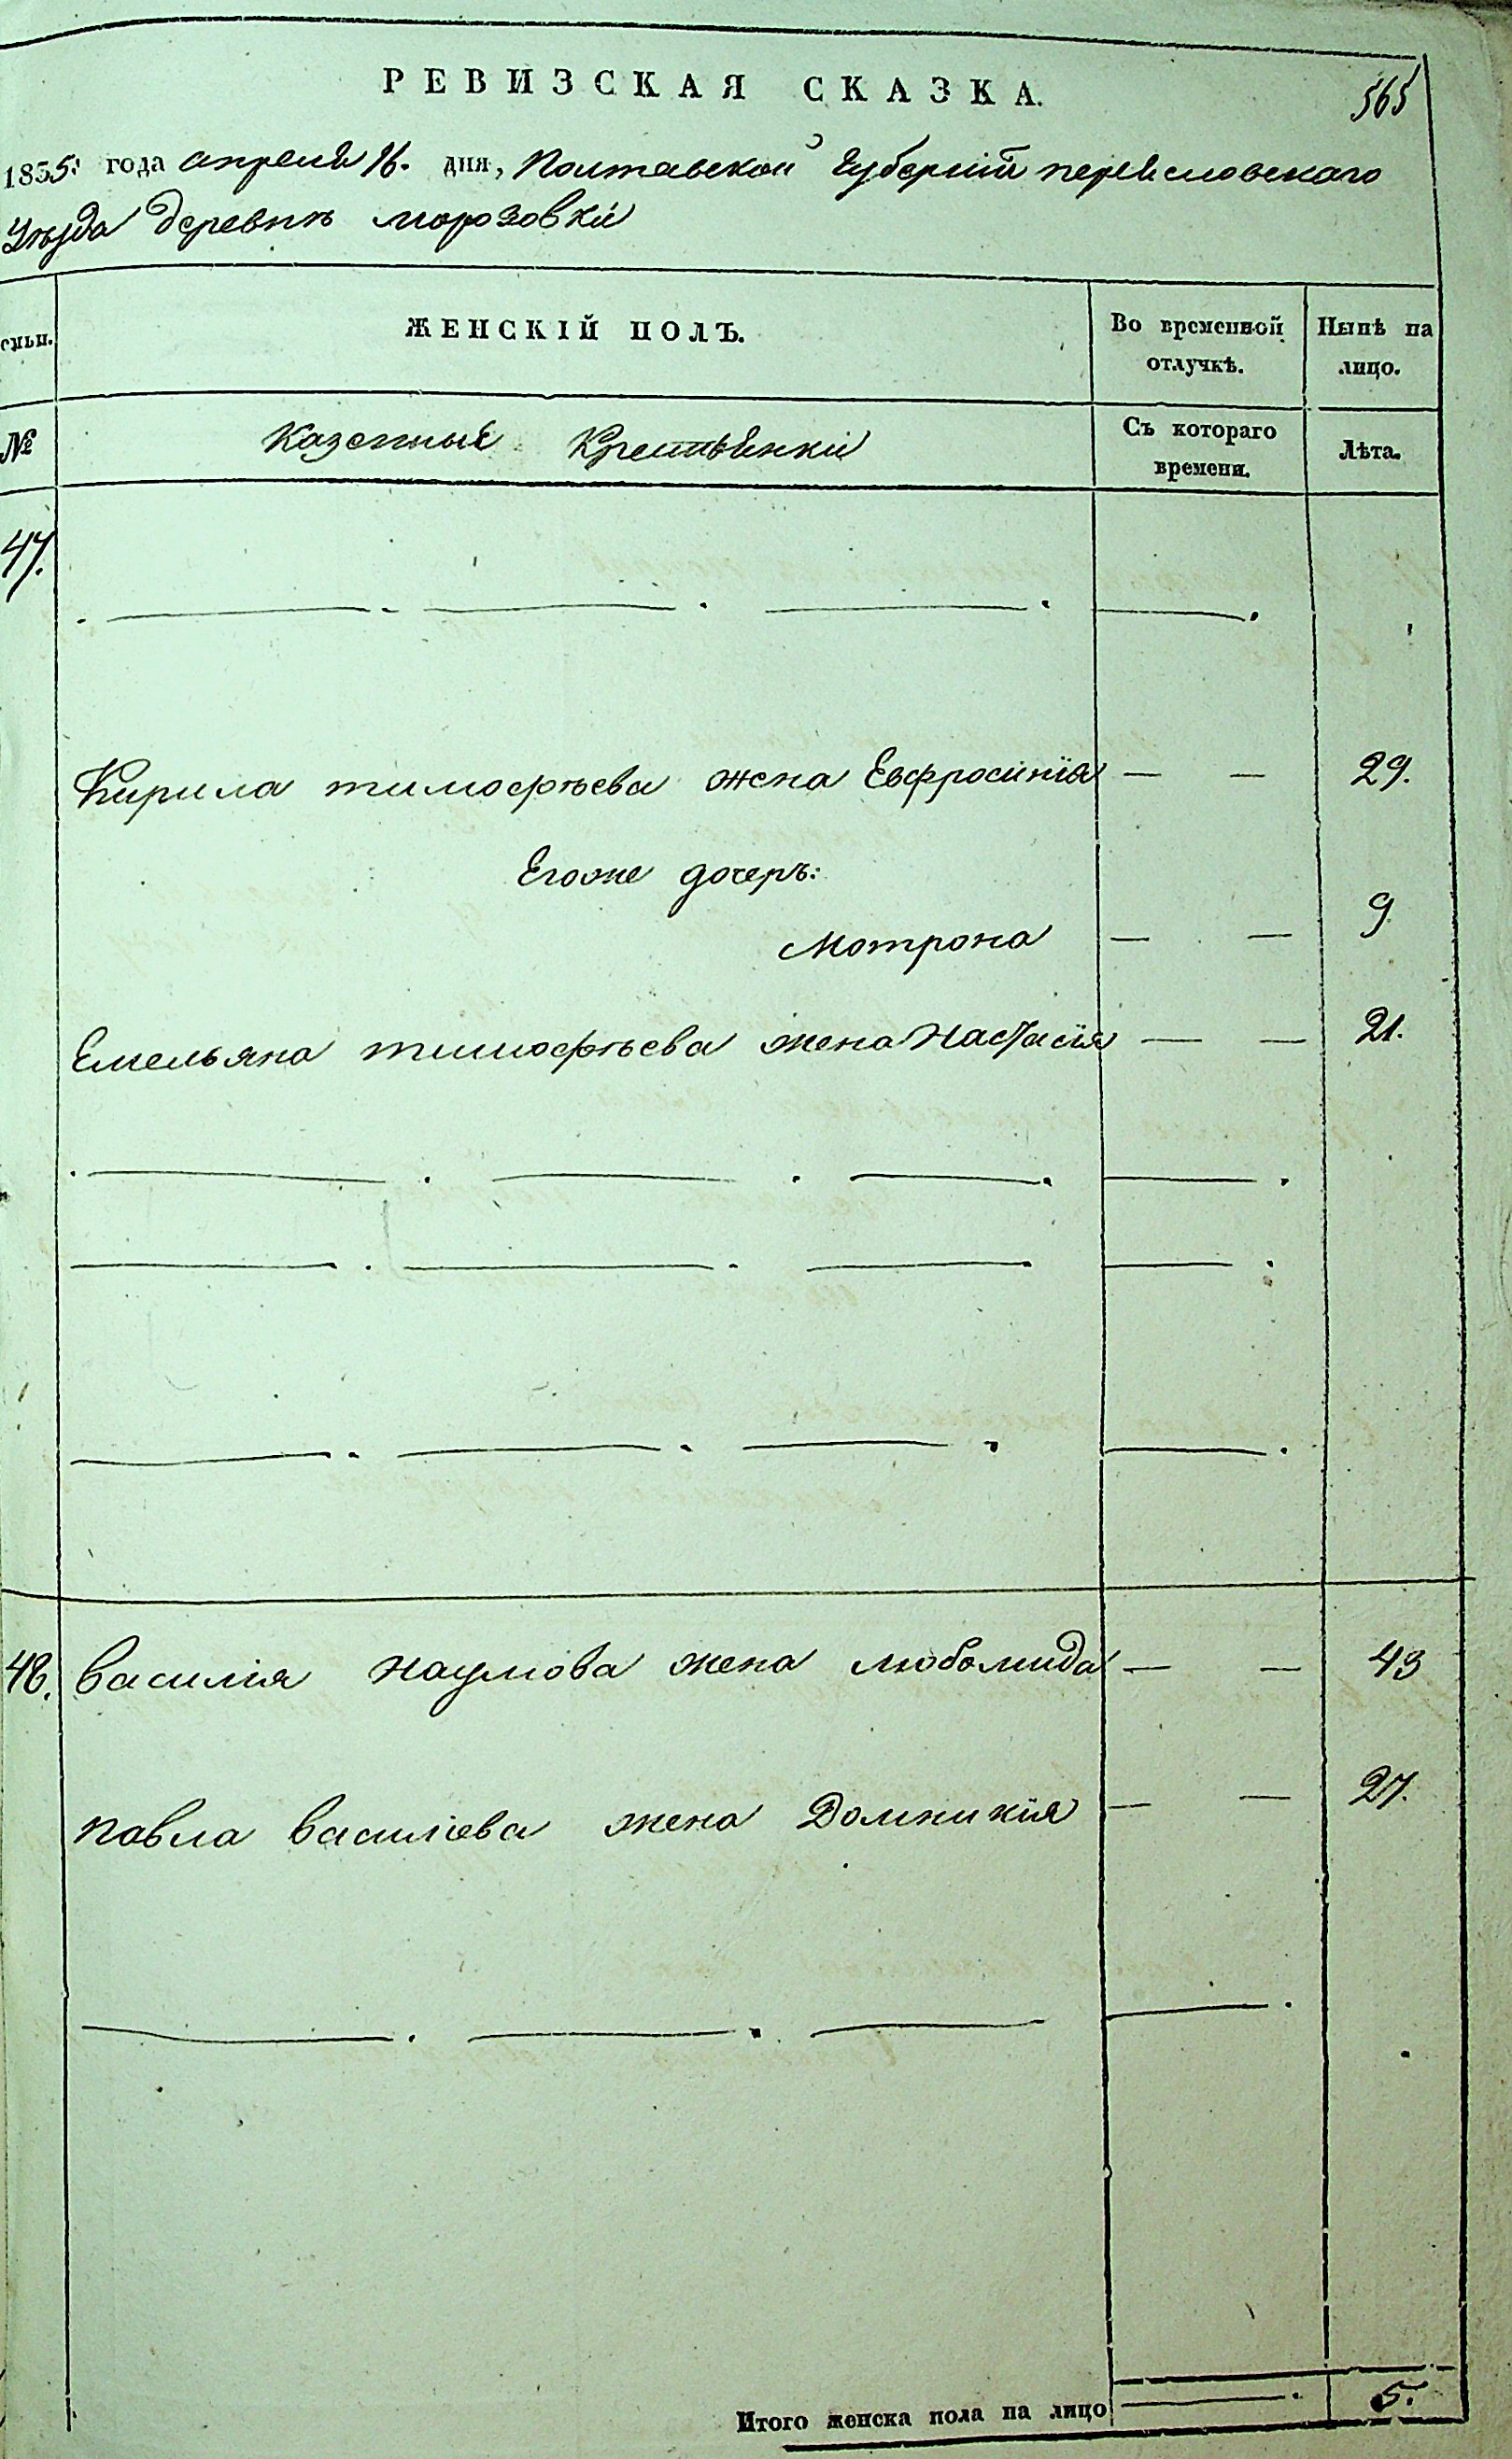 РЕВИЗСКАЯ СКАЗКА.
565
1835: года апреля 16. дня, Полтавской губернии переяславскаго
Уѣзда деревнѣ морозовки
емьи.
ЖЕНСКІЙ ПОЛЪ.
Во временной отлучкѣ.
Нынѣ на лицо.
№
Казенные Крестьянки
Съ котораго времени.
Лѣта.
47.
Кирила тимофѣева жена Евфросинія — — 29.
Егоже дочеръ:
Мотрона — — 9
Емельяна тимофѣева жена Настасія — — 21.
48. Василія Наумова жена любомида — — 43
Павла Василіева жена Домникія — — 27.
Итого женска пола на лицо 5.